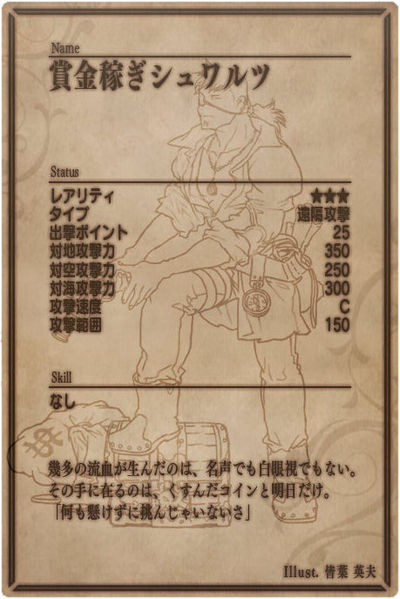 Name
賞金稼ぎシュワルツ
Status
レアリティ ★★★
タイプ 遠隔攻撃
出撃ポイント 25
対地攻撃力 350
対空攻撃力 250
対海攻撃力 300
攻撃速度 C
攻撃範囲 150
Skill
なし
幾多の流血が生んだのは、名声でも白眼視でもない。
その手に在るのは、くすんだコインと明日だけ。
「何も懸けずに挑んじゃいないさ」
Illust. 皆葉 英夫